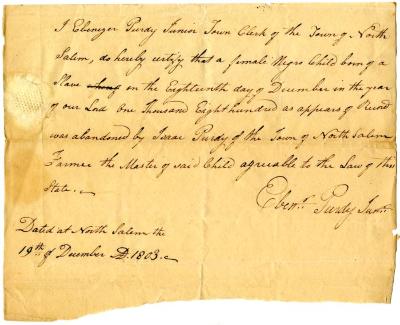 I Ebenezer Purdy Junior Town Clerk of the Town of North
Salem, do hereby certify that a female Negro Child born of a
Slave on the Eighteenth day of December in the year
of our Lord One Thousand Eight hundred as appears of Record
was abandoned by Isaac Purdy of the Town of North Salem
Farmer the Master of said Child agreeable to the Law of this
State.
Ebenr. Purdy Junr.
Dated at North Salem the
19th of December AD. 1803.